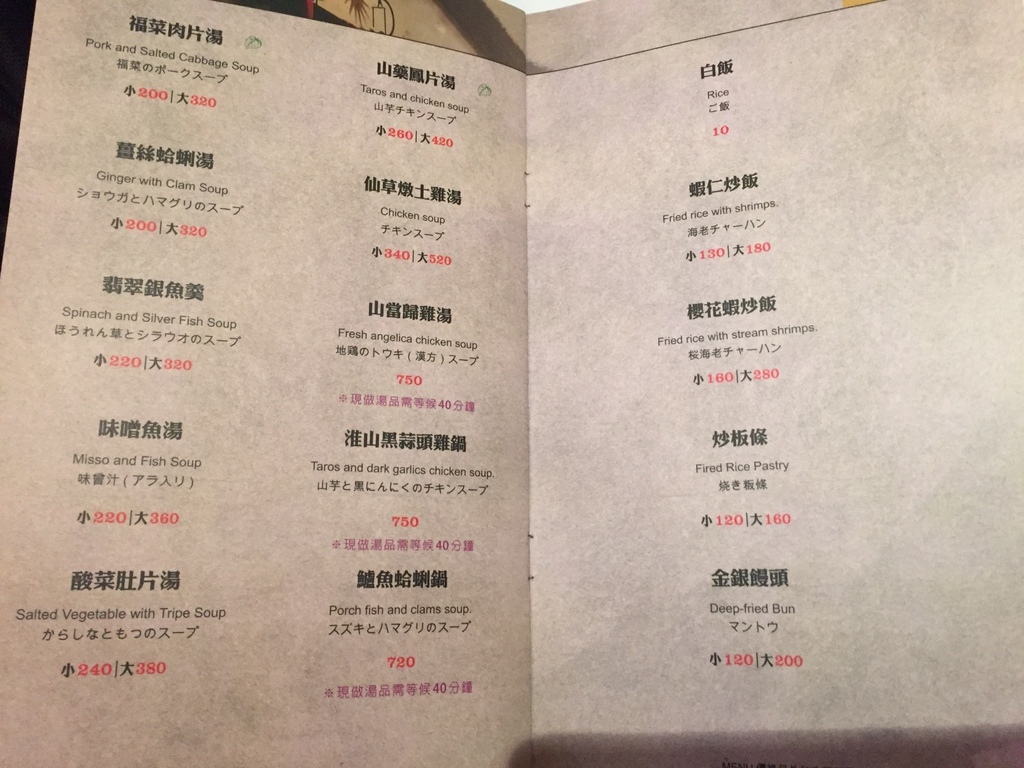 福菜肉片湯
Pork and Salted Cabbage Soup
福菜のポークスープ
小200|大320
薑絲蛤蜊湯
Ginger with Clam Soup
ショウガとハマグリのスープ
小200|大320
翡翠銀魚羹
Spinach and Silver Fish Soup
ほうれん草とシラウオのスープ
小220|大320
味噌魚湯
Misso and Fish Soup
味曾汁(アラ入リ)
小220|大360
酸菜肚片湯
Salted Vegetable with Tripe Soup
からしなともつのスープ
小240|大380
山藥鳳片湯
Taros and chicken soup
山芋チキンスープ
小260|大420
仙草燉土雞湯
Chicken soup
チキンスープ
小340|大520
山當歸雞湯
Fresh angelica chicken soup
地鶏のトウキ(漢方)スープ
750
※現做湯品需等候40分鐘
淮山黑蒜頭雞鍋
Taros and dark garlics chicken soup.
山芋と黒にんにくのチキンスープ
750
※現做湯品需等候40分鐘
鱸魚蛤蜊鍋
Porch fish and clams soup.
スズキとハマグリのスープ
720
※現做湯品需等候40分鐘
白飯
Rice
ご飯
10
蝦仁炒飯
Fried rice with shrimps.
海老チャーハン
小130|大180
櫻花蝦炒飯
Fried rice with stream shrimps.
桜海老チャーハン
小160|大280
炒粄條
Fired Rice Pastry
焼き粄條
小120|大160
金銀饅頭
Deep-fried Bun
マントウ
小120|大200
MENU